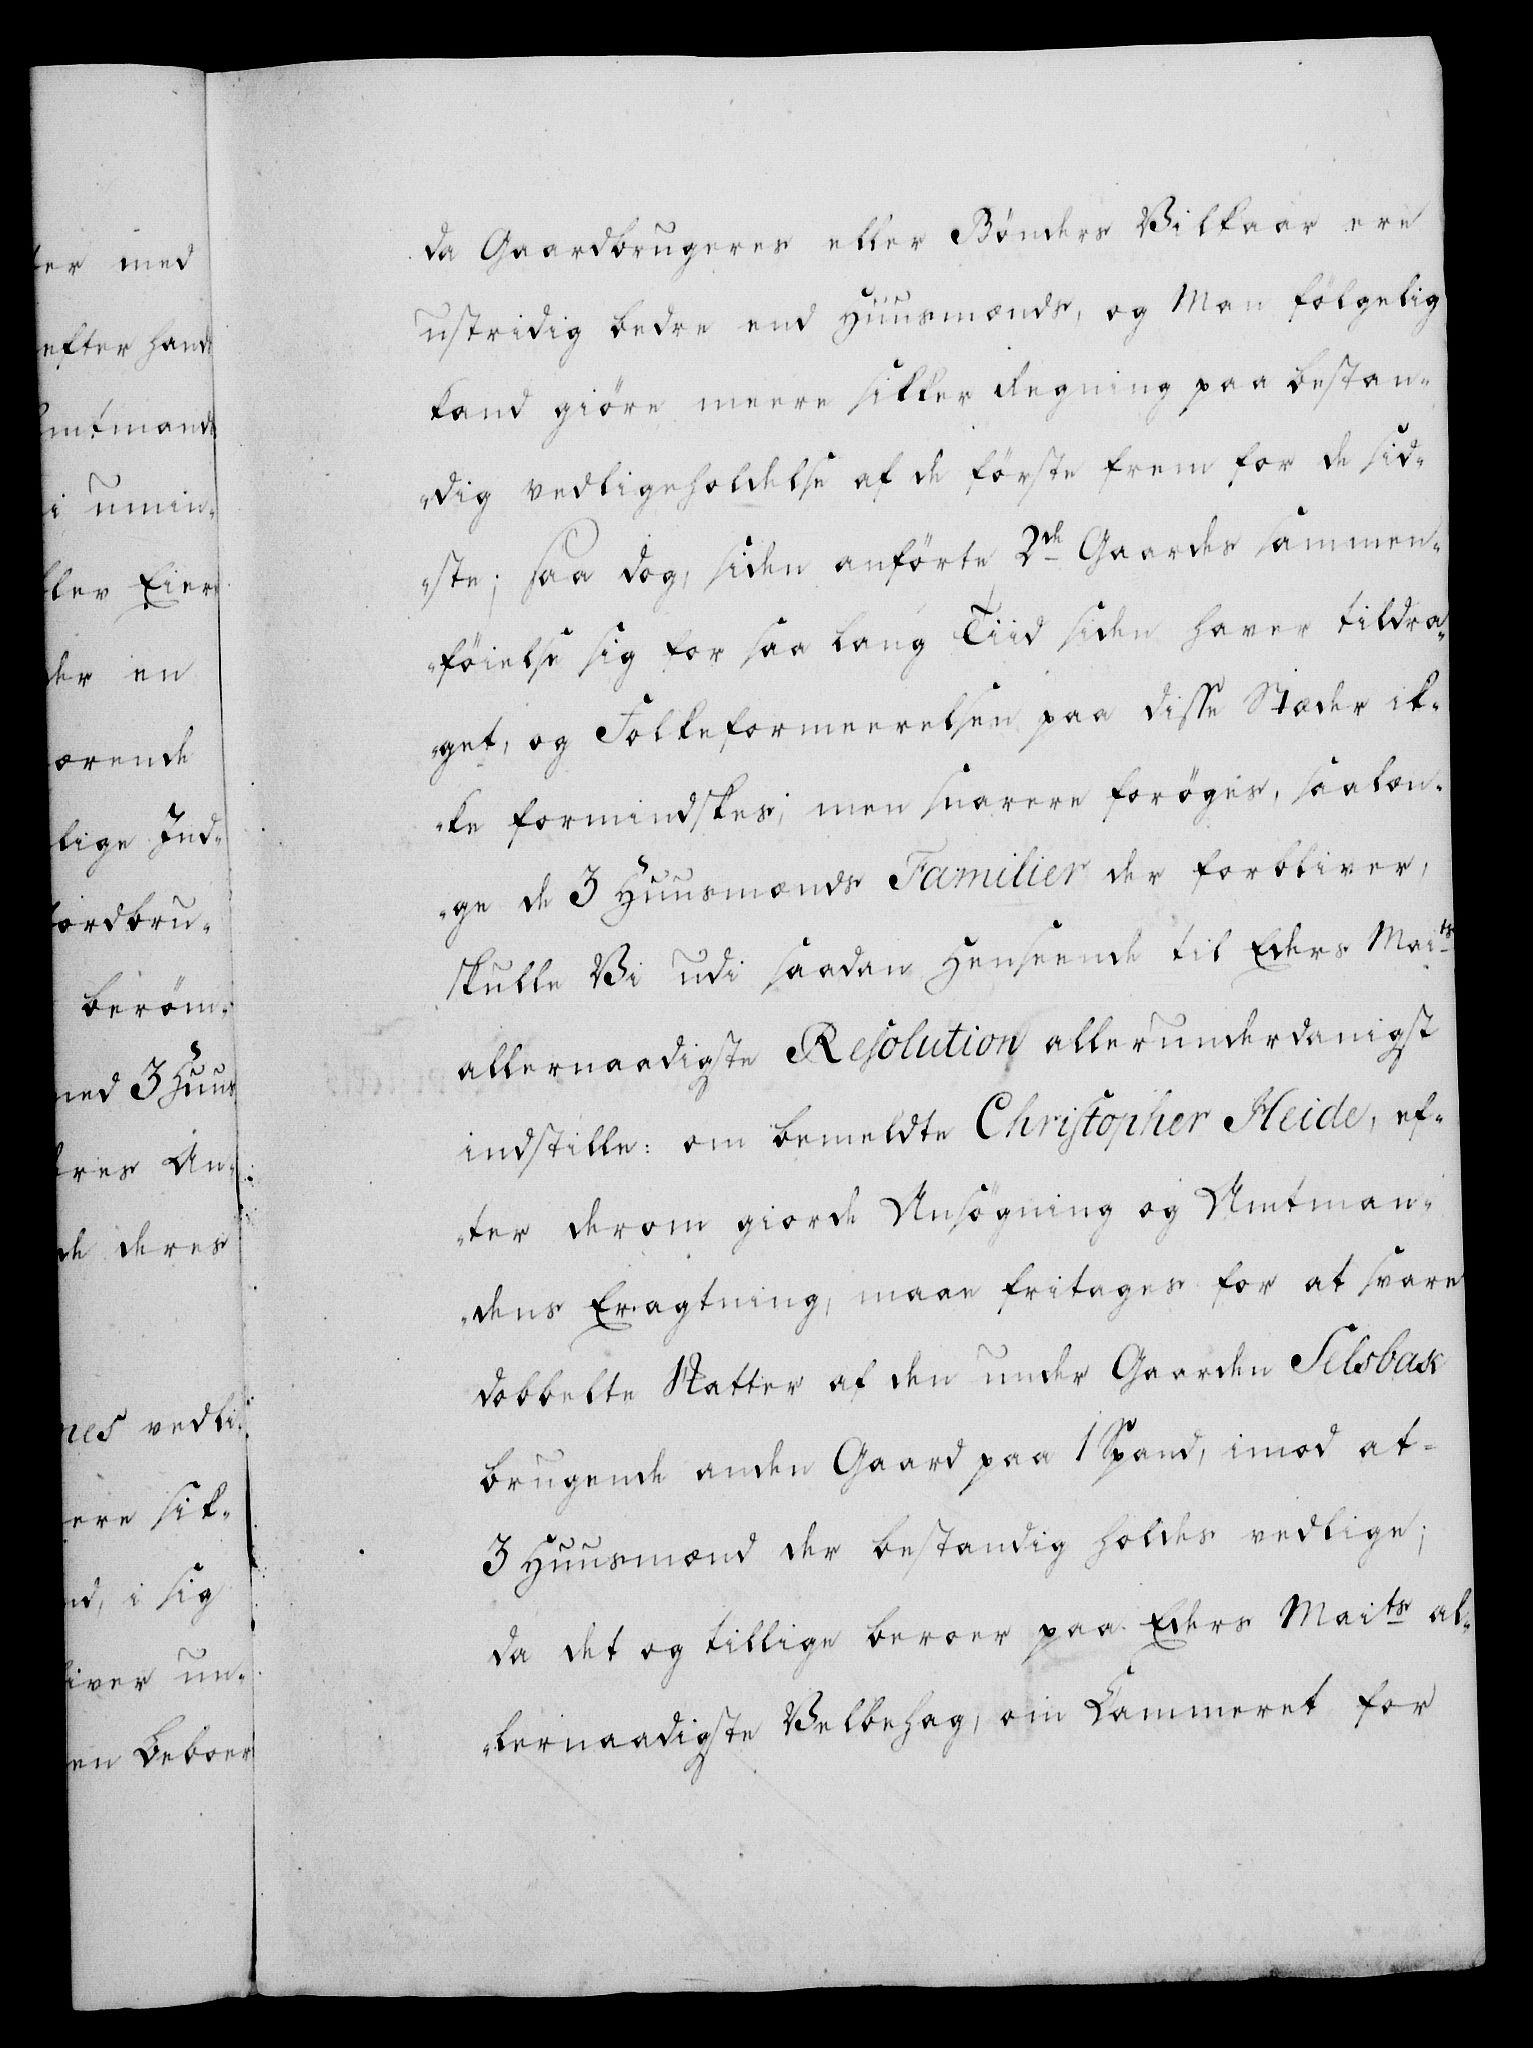 ter med
efter hand
Amtmand
i umin-
blev Eier
der en
ærende
lige Ind-
Jordbru-
berøm-
med 3 Huus
dres An-
de deres
nes vedli-
ere sik-
nd, i sig
liver un-
en Beboer
da Gaardbrugeres eller Bönders Vilkaar ere
ustridig bedre end Huusmænds, og Man fölgelig
kand giöre meere sikker Regning paa bestan-
-dig vedligeholdelse af de förste frem for de sid-
-ste; saa dog, siden anförte 2de Gaardes sammen-
-föielse sig for saa lang Tiid siden haver tildra-
-get, og Folkeformeerelsen paa disse Stæder ik-
-ke formindskes; men snarere foröges, saalæn-
-ge de 3 Huusmænds Familier der forbliver,
skulle Vi udi saadan Henseende til Eders Maits
allernaadigste Resolution allerunderdanigst
indstille: om bemeldte Christopher Heide, ef-
-ter derom giorde Ansögning og Amtman-
-dens Eragtning, maae fritages for at svare
dobbelte Skatter af den under Gaarden Selsbak
brugende anden Gaard paa 1 Spand, imod at
3 Huusmænd der bestandig holdes vedlige;
da det og tillige beroer paa Eders Maits al-
-lernaadigste Velbehag, om Kammeret for